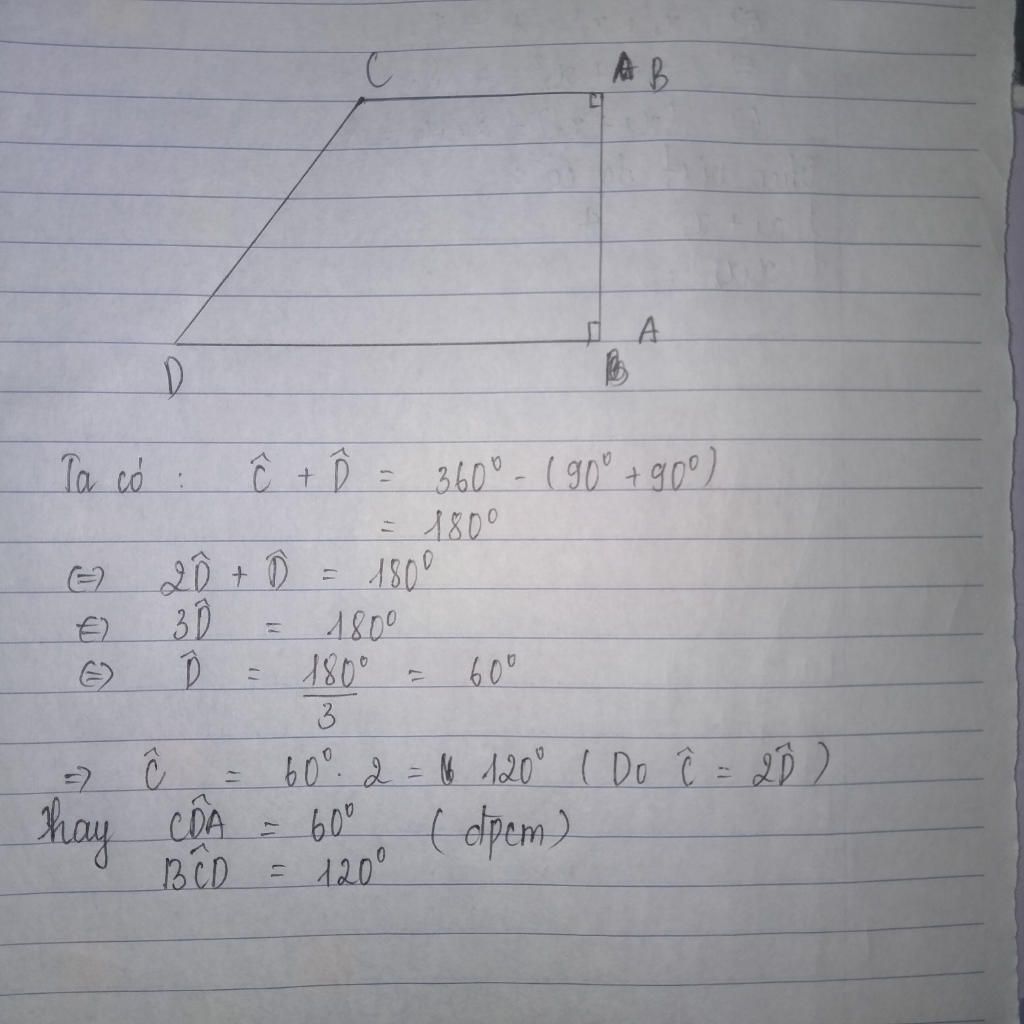 C B
D A
Ta có : Ĉ + D̂ = 360° - (90° + 90°)
= 180°
⇔ 2D̂ + D̂ = 180°
⇔ 3D̂ = 180°
⇔ D̂ = 180°/3 = 60°
⇒ Ĉ = 60° . 2 = 120° ( Do Ĉ = 2D̂ )
hay CD̂A = 60° (đpcm)
BĈD = 120°